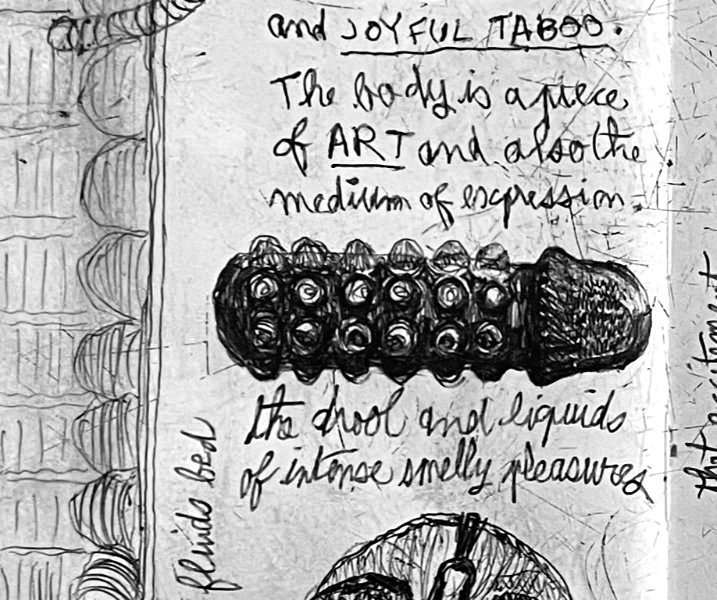 and JOYFUL TABOO.
The body is a piece
of ART and also the
medium of expression.
the drool and liquids
of intense smelly pleasures
fluids bed
that excitement